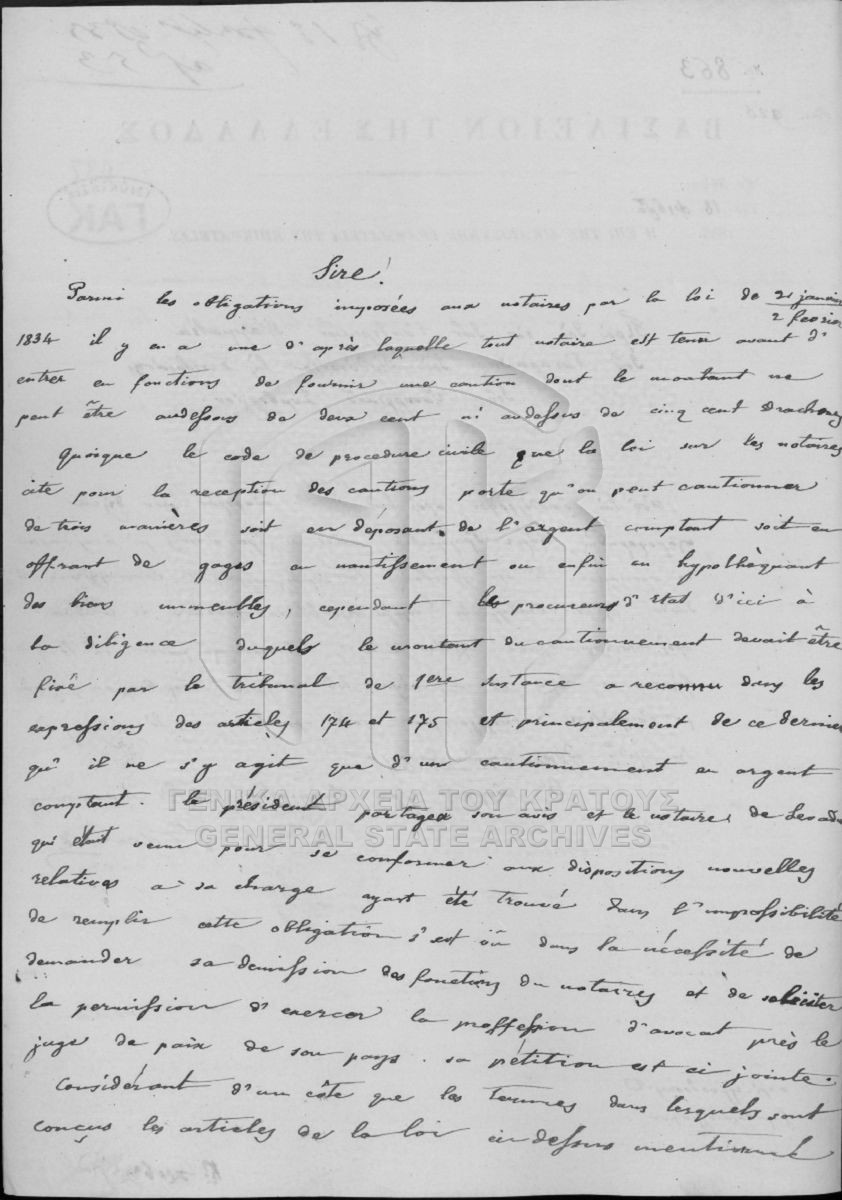 Sire!
Parmi les obligations imposées aux notaires par la loi de 21 janvier
2 fevrier
1834 il y en a une d'après laquelle tout notaire est tenu avant d'
entrer en fonctions de fournir une caution dont le montant ne
peut être audessous de deux cent ni audessus de cinq cent Drachmes
Quoique le code de procedure civile que la loi sur les notaires
cite pour la reception des cautions porte qu'on peut cautionner
de trois manières soit en déposant de l'argent comptant soit en
offrant de gages ou nantissement ou enfin en hypothèquant
des biens immeubles, cependant les procureurs d'Etat d'ici à
la diligence duquels le montant du cautionnement devait être
fixé par le tribunal de 1ere Instance a reconnu dans les
expressions des articles 174 et 175 et principalement de ce dernier
qu'il ne s'y agit que d'un cautionnement en argent
comptant. le président partagea son avis et le notaire de Levadie
qui était venu pour se conformer aux dispositions nouvelles
relatives a sa charge ayant été trouvé dans l'impossibilité
de remplir cette obligation s'est vû dans la nécessité de
demander sa demission des fonctions du notaires et de solliciter
la permission d'exercer la proffession d'avocat près le
juge de paix de son pays. sa pétition est ci jointe.
Considérant d'un côte que les termes dans lesquels sont
conçus les articles de la loi ci dessus mentionné
ΓΕΝΙΚΑ ΑΡΧΕΙΑ ΤΟΥ ΚΡΑΤΟΥΣ
GENERAL STATE ARCHIVES